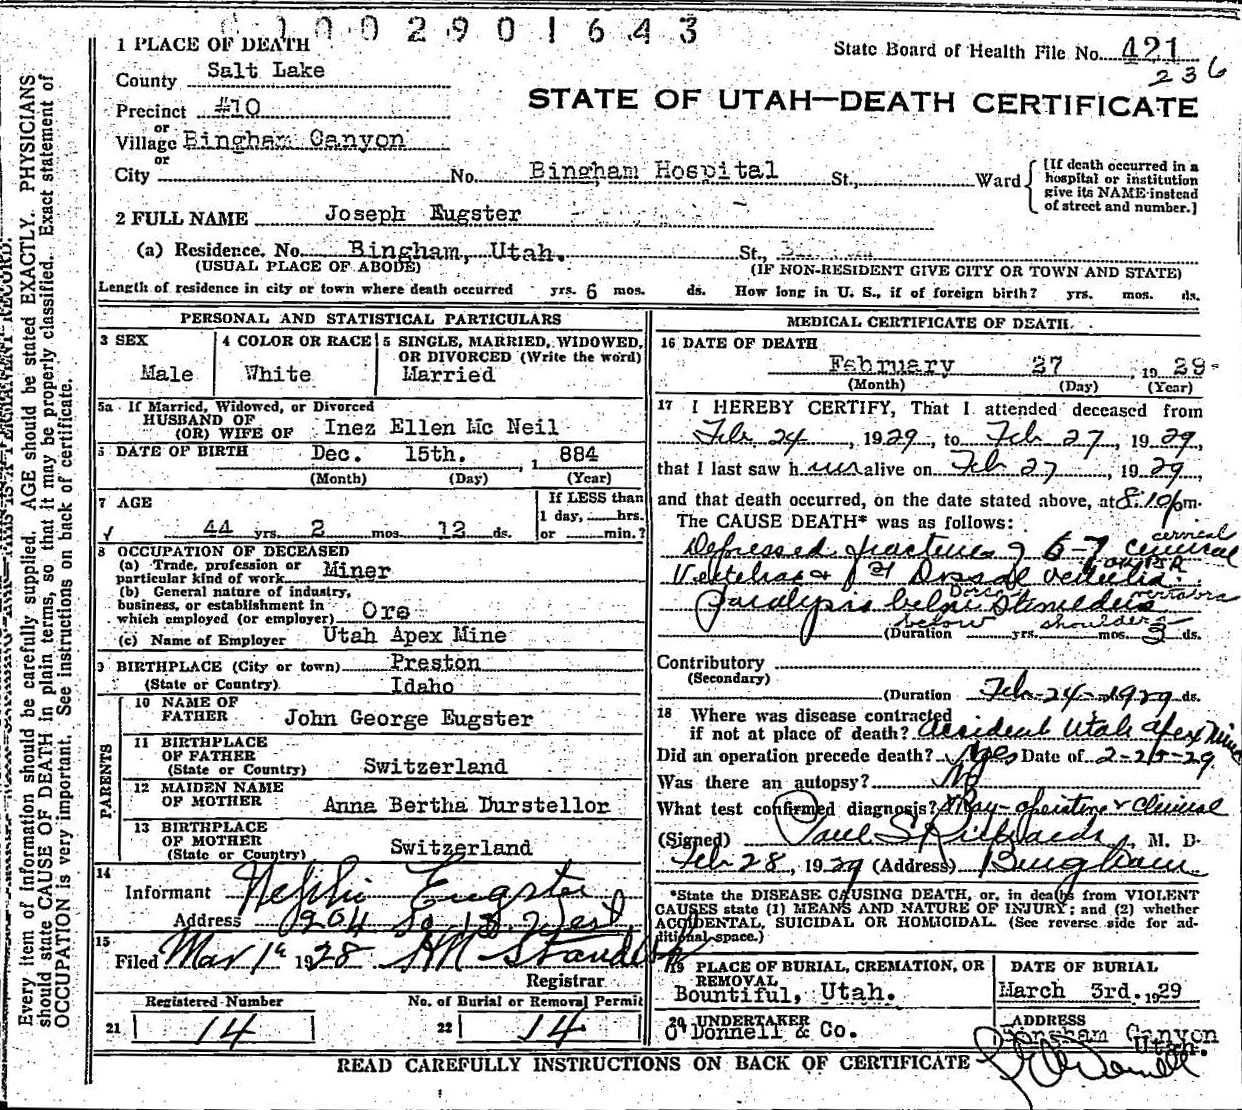 1002901643
State Board of Health File No. 421
236
STATE OF UTAH—DEATH CERTIFICATE
1 PLACE OF DEATH
County Salt Lake
Precinct #10
or
Village Bingham Canyon
or
City No. Bingham Hospital St., Ward
[If death occurred in a hospital or institution give its NAME instead of street and number.]
2 FULL NAME Joseph Eugster
(a) Residence. No. Bingham, Utah. St.,
(USUAL PLACE OF ABODE) (IF NON-RESIDENT GIVE CITY OR TOWN AND STATE)
Length of residence in city or town where death occurred yrs. 6 mos. ds. How long in U. S., if of foreign birth? yrs. mos. ds.
PERSONAL AND STATISTICAL PARTICULARS
3 SEX
Male
4 COLOR OR RACE
White
5 SINGLE, MARRIED, WIDOWED,
OR DIVORCED (Write the word)
Married
5a If Married, Widowed, or Divorced
HUSBAND OF
(OR) WIFE OF Inez Ellen Mc Neil
DATE OF BIRTH Dec. 15th. , 1 884
(Month) (Day) (Year)
7 AGE
44 yrs. 2 mos. 12 ds.
If LESS than
1 day, hrs.
or min.?
8 OCCUPATION OF DECEASED
(a) Trade, profession or
particular kind of work Miner
(b) General nature of industry,
business, or establishment in
which employed (or employer) Ore
(c) Name of Employer Utah Apex Mine
9 BIRTHPLACE (City or town) Preston
(State or Country) Idaho
PARENTS
10 NAME OF
FATHER John George Eugster
11 BIRTHPLACE
OF FATHER
(State or Country) Switzerland
12 MAIDEN NAME
OF MOTHER Anna Bertha Durstellor
13 BIRTHPLACE
OF MOTHER
(State or Country) Switzerland
14
Informant Nephi Eugster
Address 1204 So 13 West
15
Filed Mar 1st 1928 HM Standish
Registrar
Registered Number
21 14
No. of Burial or Removal Permit
22 14
MEDICAL CERTIFICATE OF DEATH.
16 DATE OF DEATH
February 27 , 19 29
(Month) (Day) (Year)
17 I HEREBY CERTIFY, That I attended deceased from
Feb 24 , 1929, to Feb 27 , 1929,
that I last saw h im alive on Feb 27 , 1929,
and that death occurred, on the date stated above, at 8:10 pm.
The CAUSE DEATH* was as follows:
cervical
Depressed fracture of 6-7 Cervical
Vertebrae & 1st Dorsal vertebra.
Dorsal vertebra
Paralysis below Shoulders
below shoulders
(Duration yrs. mos. 3 ds.
Contributory
(Secondary)
(Duration Feb-24-1929 ds.
18 Where was disease contracted
if not at place of death? Accident Utah Apex Mine
Did an operation precede death? Yes Date of 2-25-29
Was there an autopsy? No
What test confirmed diagnosis? XRay-operative & clinical
(Signed) Paul S Richards, M. D.
Feb 28, 1929 (Address) Bingham
*State the DISEASE CAUSING DEATH, or, in deaths from VIOLENT
CAUSES state (1) MEANS AND NATURE OF INJURY; and (2) whether
ACCIDENTAL, SUICIDAL OR HOMICIDAL. (See reverse side for ad-
ditional space.)
19 PLACE OF BURIAL, CREMATION, OR
REMOVAL
Bountiful, Utah.
DATE OF BURIAL
March 3rd. 1929
20 UNDERTAKER
O'Donnell & Co.
ADDRESS
Bingham Canyon
Utah.
READ CAREFULLY INSTRUCTIONS ON BACK OF CERTIFICATE
Every item of information should be carefully supplied. AGE should be stated EXACTLY. PHYSICIANS
should state CAUSE OF DEATH in plain terms, so that it may be properly classified. Exact statement of
OCCUPATION is very important. See instructions on back of certificate.